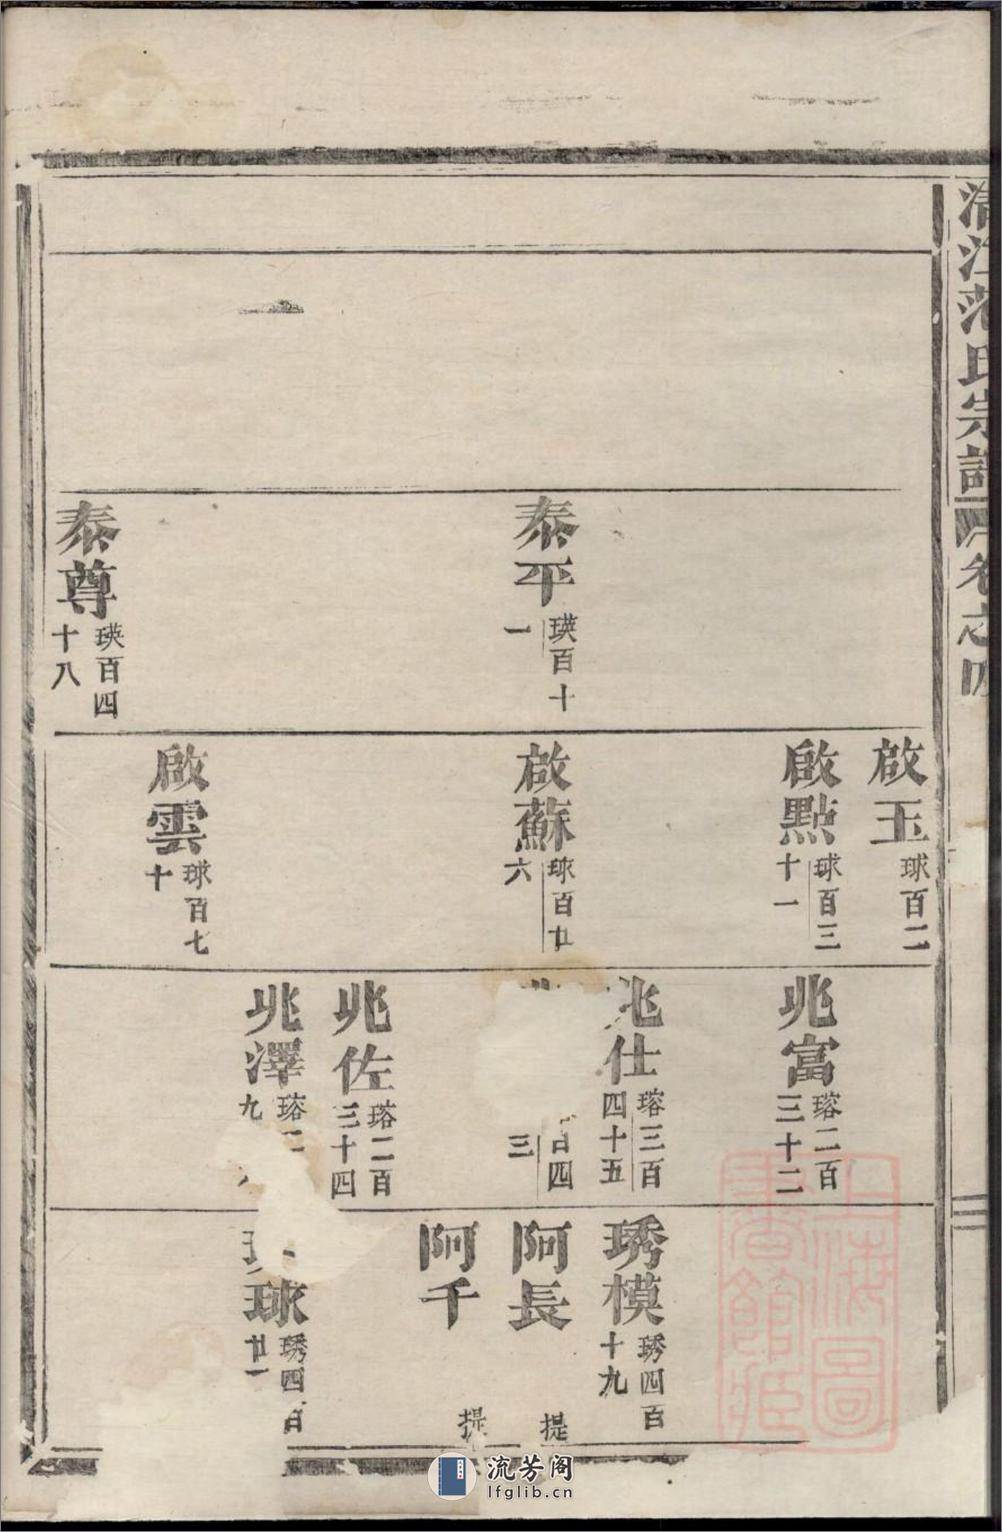 清江范氏宗譜 卷之四
泰平 瑛百十一
泰尊 瑛百四十八
啟玉 球百二
啟點 球百三十一
啟蘇 球百廿六
啟雲 球百七十
兆富 瑢二百三十二
兆仕 瑢三百四十五
百四三
兆佐 瑢二百三十四
兆澤 瑢二 九
琇模 琇四百十九
阿長 提
阿千 提
球 琇四百廿一
上海圖書館藏
流芳阁
lfglib.cn